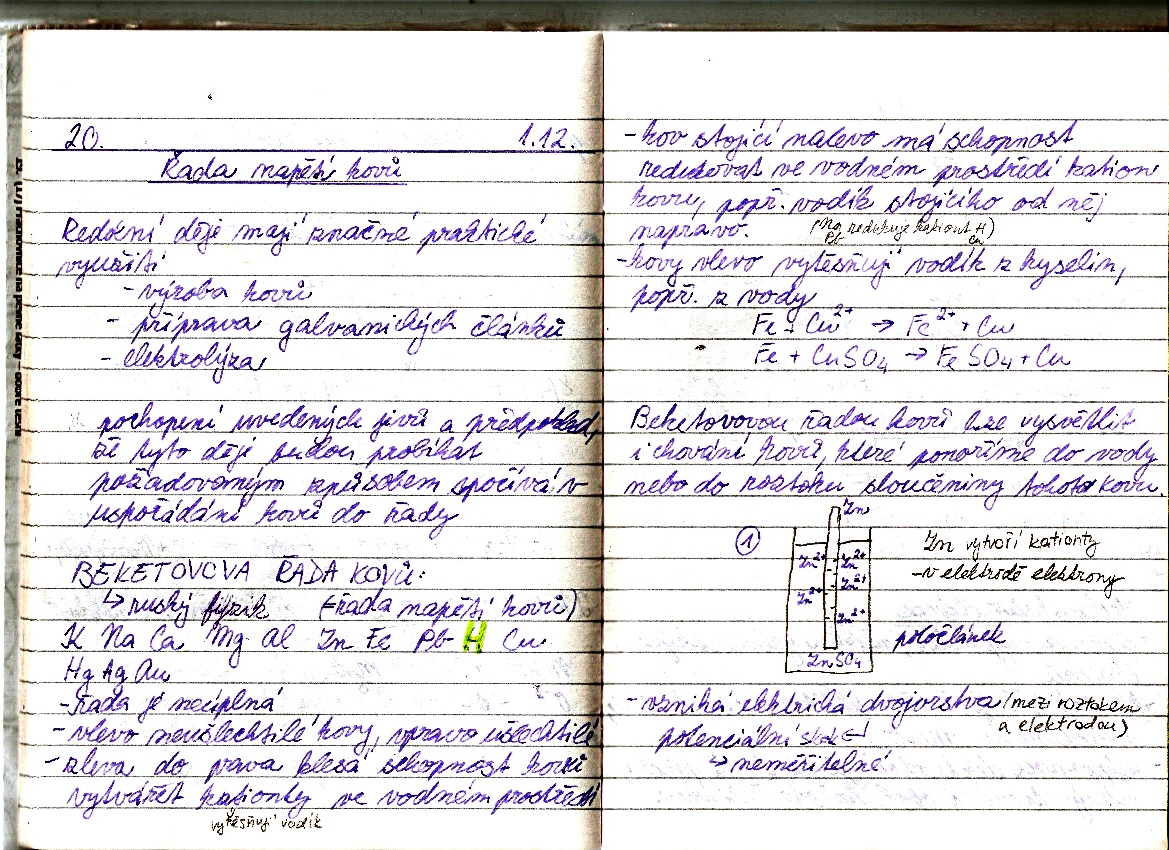 20. 1.12.
Řada napětí kovů
Redoxní děje mají značné praktické
využití
- výroba kovů
- příprava galvanických článků
- elektrolýza
pochopení uvedených jevů a předpoklad,
že tyto děje budou probíhat
požadovaným způsobem spočívá v
uspořádání kovů do řady
BEKETOVOVA ŘADA KOVŮ:
↳ ruský fyzik (=řada napětí kovů)
K Na Ca Mg Al Zn Fe Pb H Cu
Hg Ag Au
- Řada je neúplná
- vlevo neušlechtilé kovy, vpravo ušlechtilé
- zleva do prava klesá schopnost kovů
vytvářet kationty ve vodném prostředí
vytěsňují vodík
- kov stojící nalevo má schopnost
redukovat ve vodném prostředí kation
kovu, popř. vodík stojícího od něj
napravo. (Na redukuje kationt H)
Pb Cu
- kovy vlevo vytěsňují vodík z kyselin,
popř. z vody
Fe + Cu²⁺ → Fe²⁺ + Cu
Fe + CuSO₄ → FeSO₄ + Cu
Beketovovou řadou kovů lze vysvětlit
i chování kovů, které ponoříme do vody
nebo do roztoku sloučeniny tohoto kovu.
1 Zn
Zn²⁺ Zn²⁺
Zn²⁺
Zn²⁺ Zn²⁺
ZnSO₄
Zn vytvoří kationty
- v elektrodě elektrony
poločlánek
- vzniká elektrická dvojvrstva (mezi roztokem
a elektrodou)
potenciální skok ↵
↳ neměřitelné